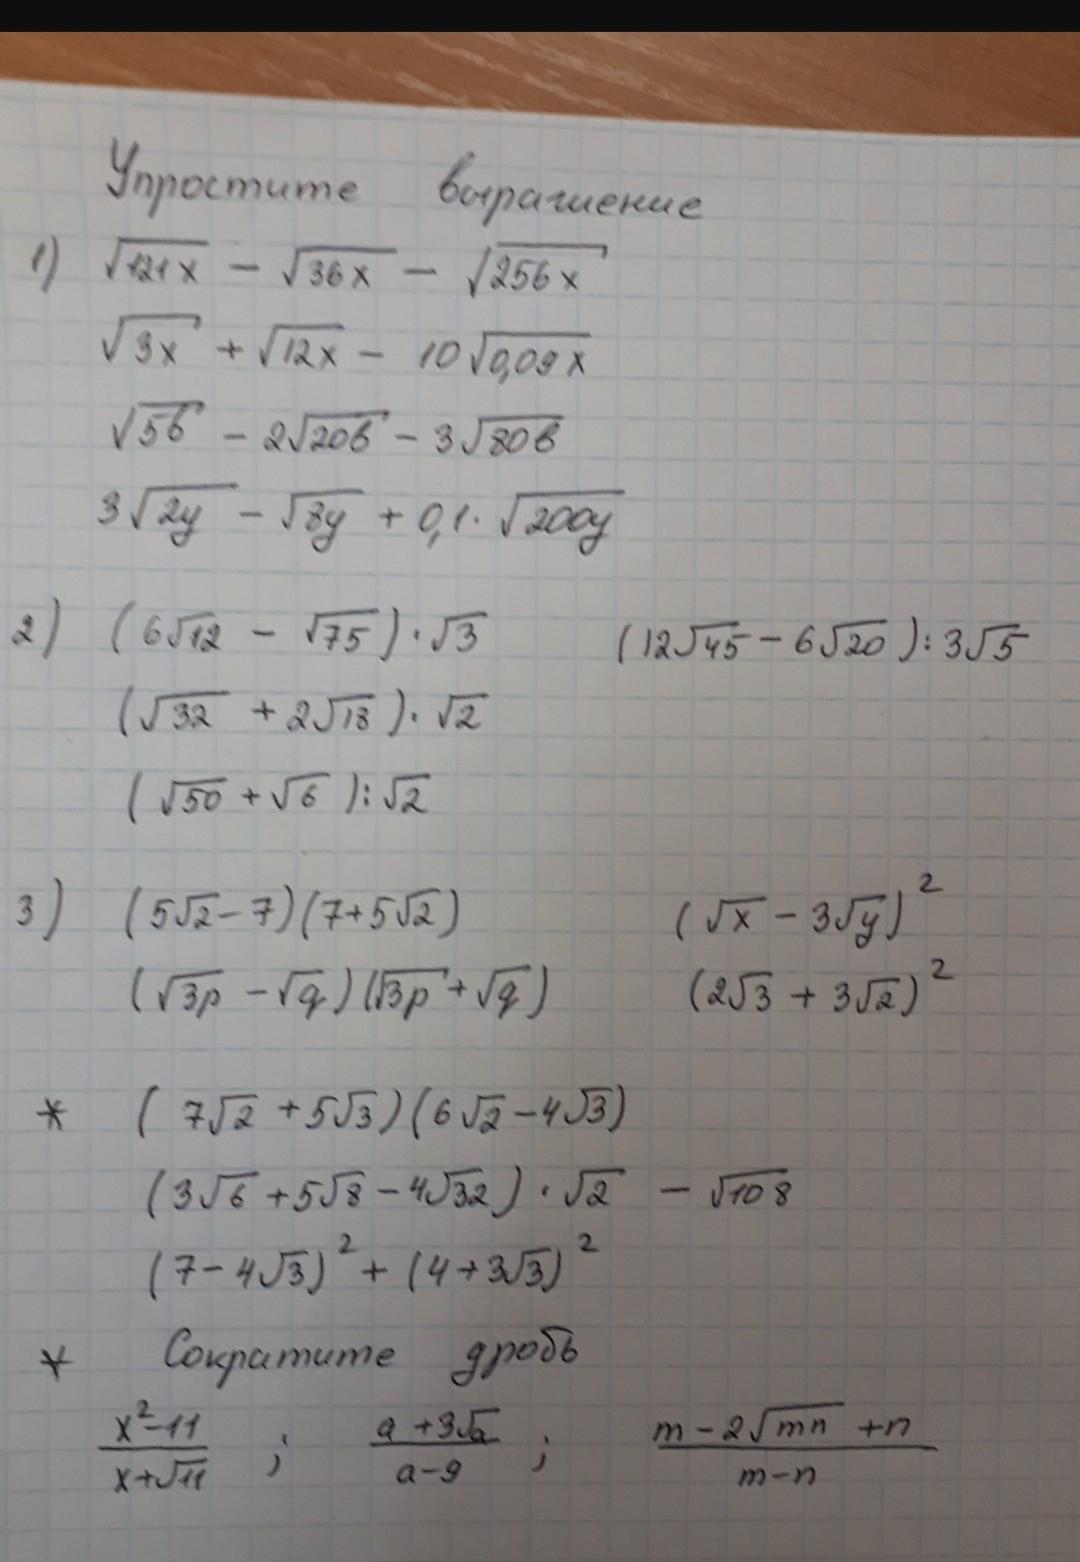 Упростите выражение
1) √121x − √36x − √256x
√3x + √12x − 10√0,09x
√5b − 2√20b − 3√80b
3√2y − √8y + 0,1·√200y
2) (6√12 − √75)·√3 (12√45 − 6√20):3√5
(√32 + 2√18)·√2
(√50 + √6):√2
3) (5√2 − 7)(7 + 5√2) (√x − 3√y)²
(√3p − √q)(√3p + √q) (2√3 + 3√2)²
* (7√2 + 5√3)(6√2 − 4√3)
(3√6 + 5√8 − 4√32)·√2 − √108
(7 − 4√3)² + (4 + 3√3)²
* Сократите дробь
x² − 11 / x + √11 ; a + 3√a / a − 9 ; m − 2√mn + n / m − n